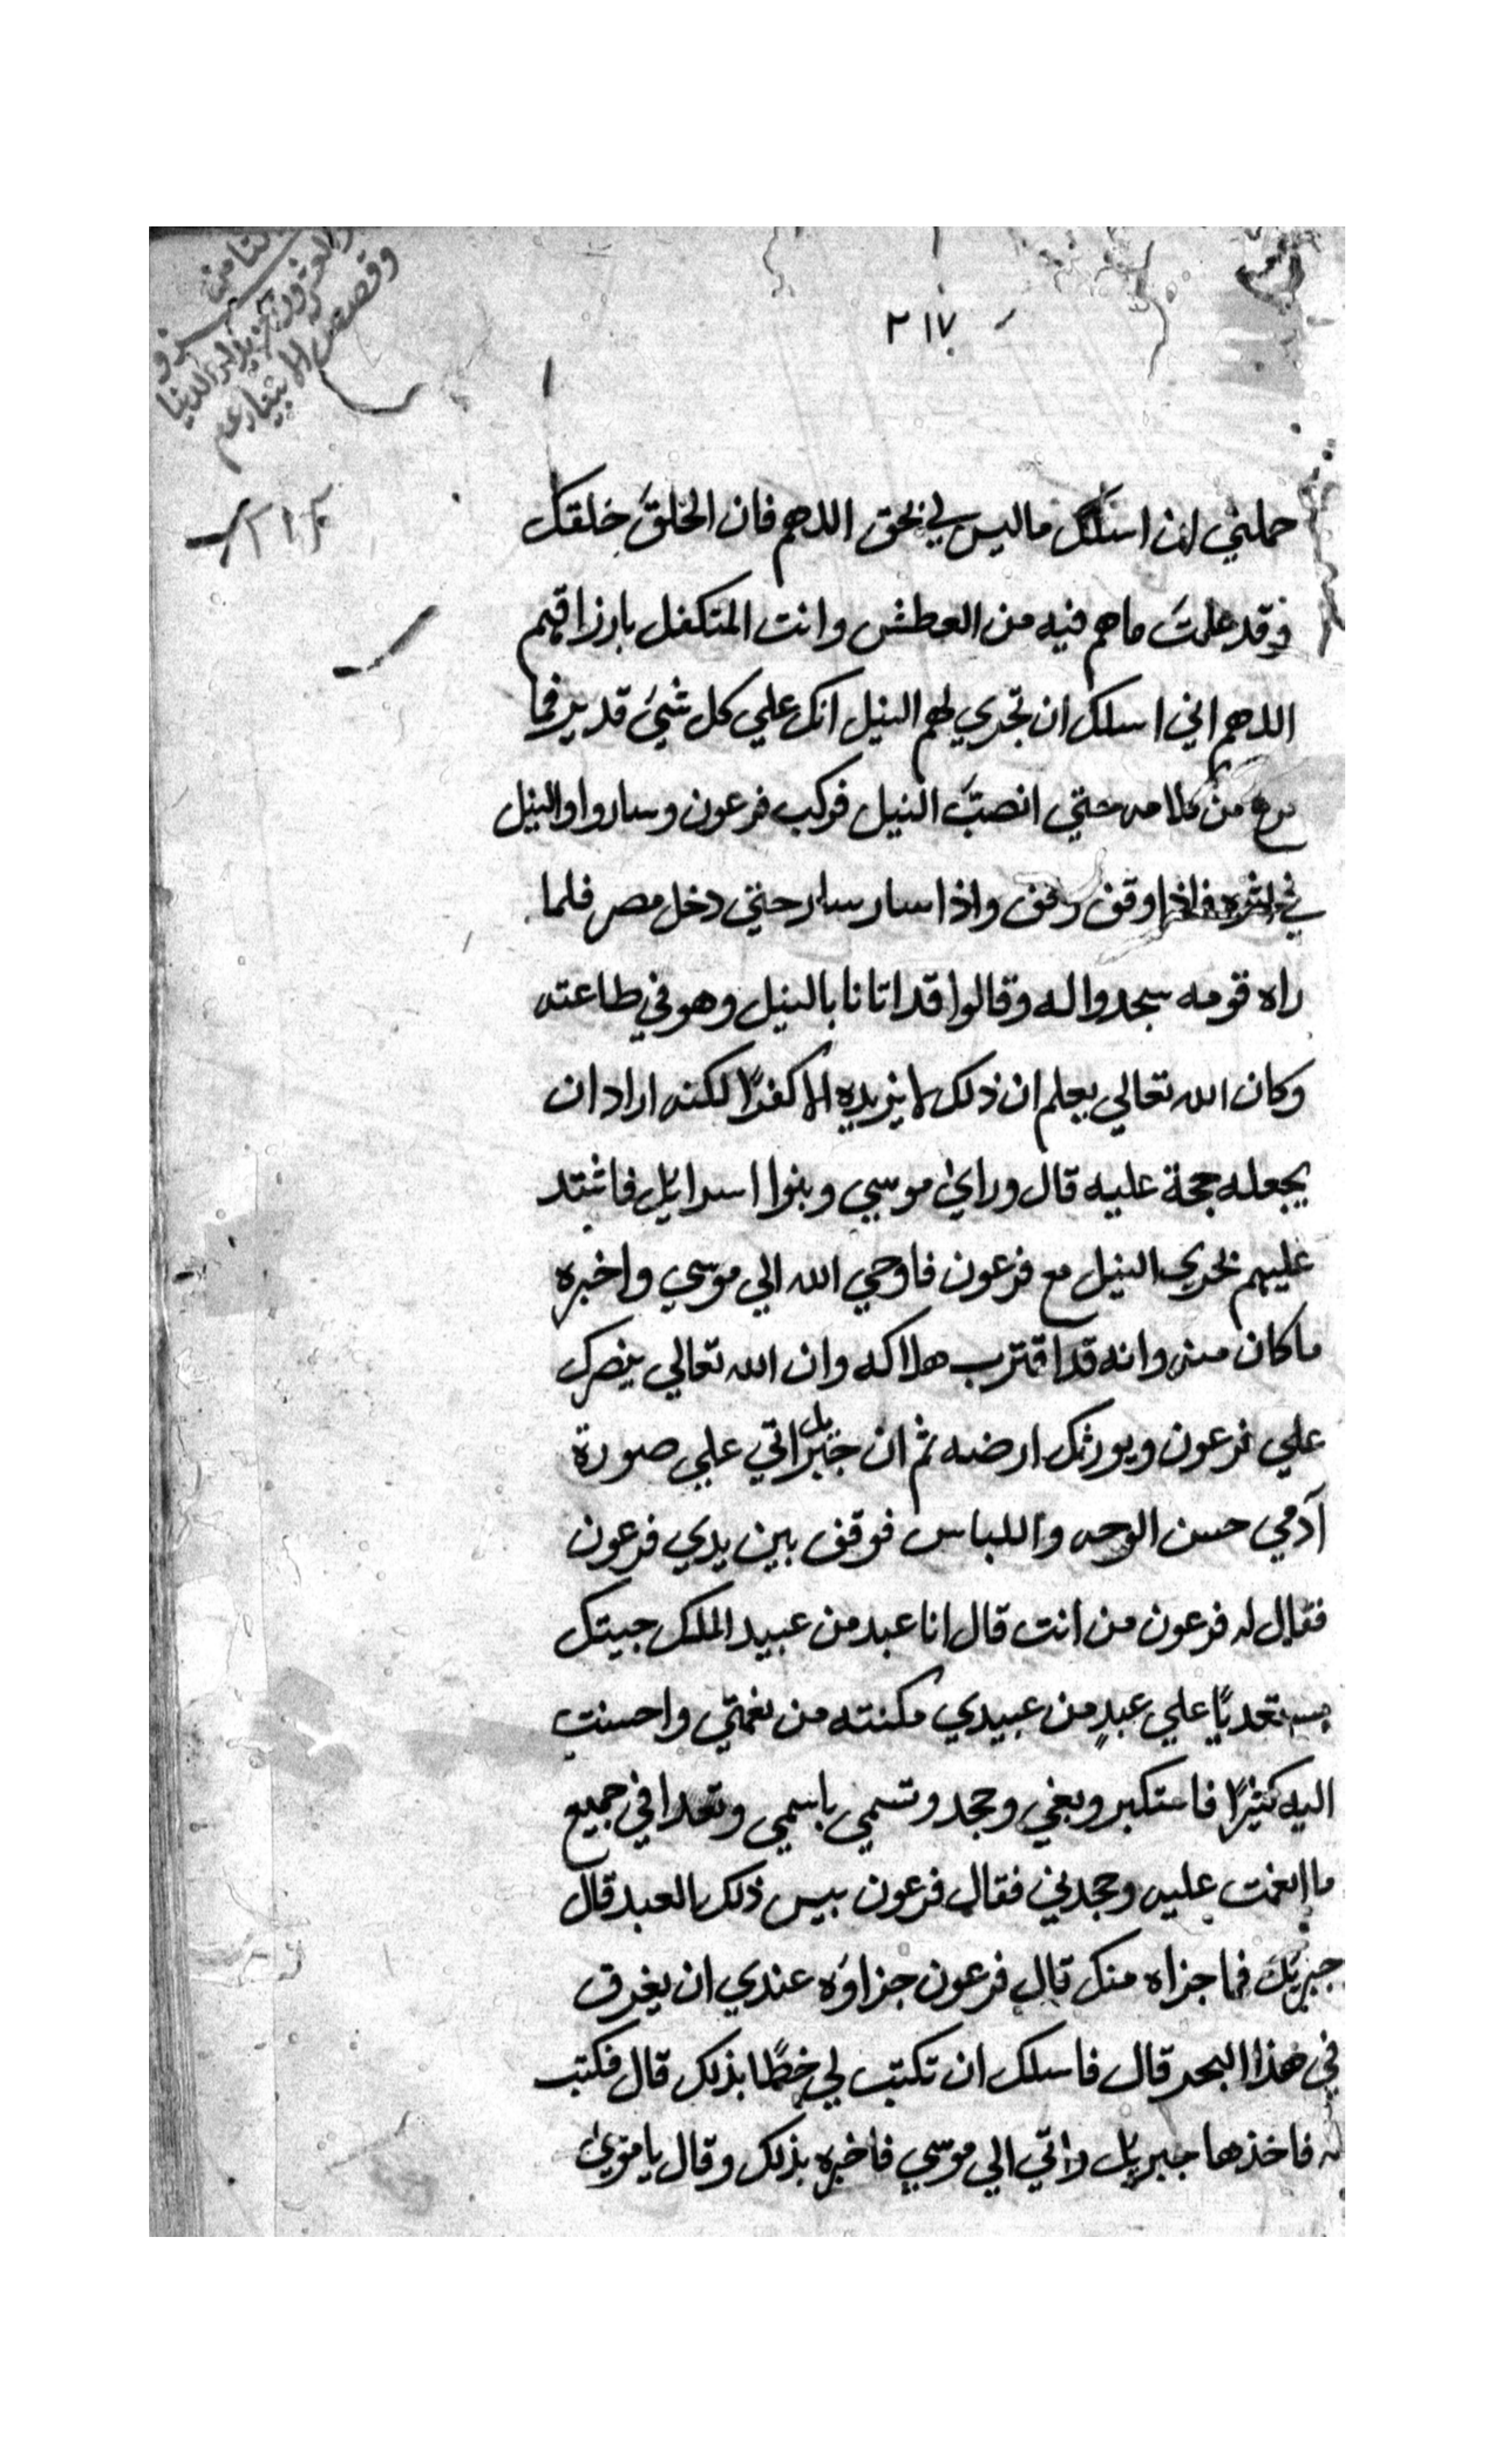 الثامن
وقصص الانبياء عم
٢١٧
٢١٢
حملني ان اسئلك ماليس لي بحق اللدهم فان الخلقَ خلقك
وقد علمتَ ماهم فيه من العطش وانت المتكفل بارزاقهم
اللدهم اني اسلك ان تجري لهم النيل انك علي كل شيء قدير فما
فرغ من كلامه حتي انصبَّ النيل فركب فرعون وساروا والنيل
في اثره فاذا وقف وقف واذا سار سار حتي دخل مصر فلما
راه قومه سجدوا له وقالوا قد اتانا بالنيل وهو في طاعته
وكان الله تعالي يعلم ان ذلك لا يزيده الا كفرًا لكنه اراد ان
يجعله حجة عليه قال وراي موسي وبنوا اسرايل فاشتد
عليهم بجري النيل مع فرعون فاوحي الله الي موسي واخبره
ماكان منه وانه قد اقترب هلاكه وان الله تعالي ينصرك
علي فرعون ويورثك ارضه ثم ان جبريل اتي علي صورة
آدمي حسن الوجه واللباس فوقف بين يدي فرعون
فقال له فرعون من انت قال انا عبد من عبيد الملك جيتك
مستعديًا علي عبدٍ من عبيدي مكنته من نعمتي واحسنت
اليه كثيرًا فاستكبر وبغي وجحد وتسمي باسمي وتعدا في جميع
ما انعمت عليه وجحدني فقال فرعون بيس ذلك العبد قال
جبريل فما جزاه منك قال فرعون جزاوه عندي ان يغرق
في هذا البحر قال فاسلك ان تكتب لي خطًا بذلك قال فكتب
له فاخذها جبريل واتي الي موسي فاخبره بذلك وقال يا موسي